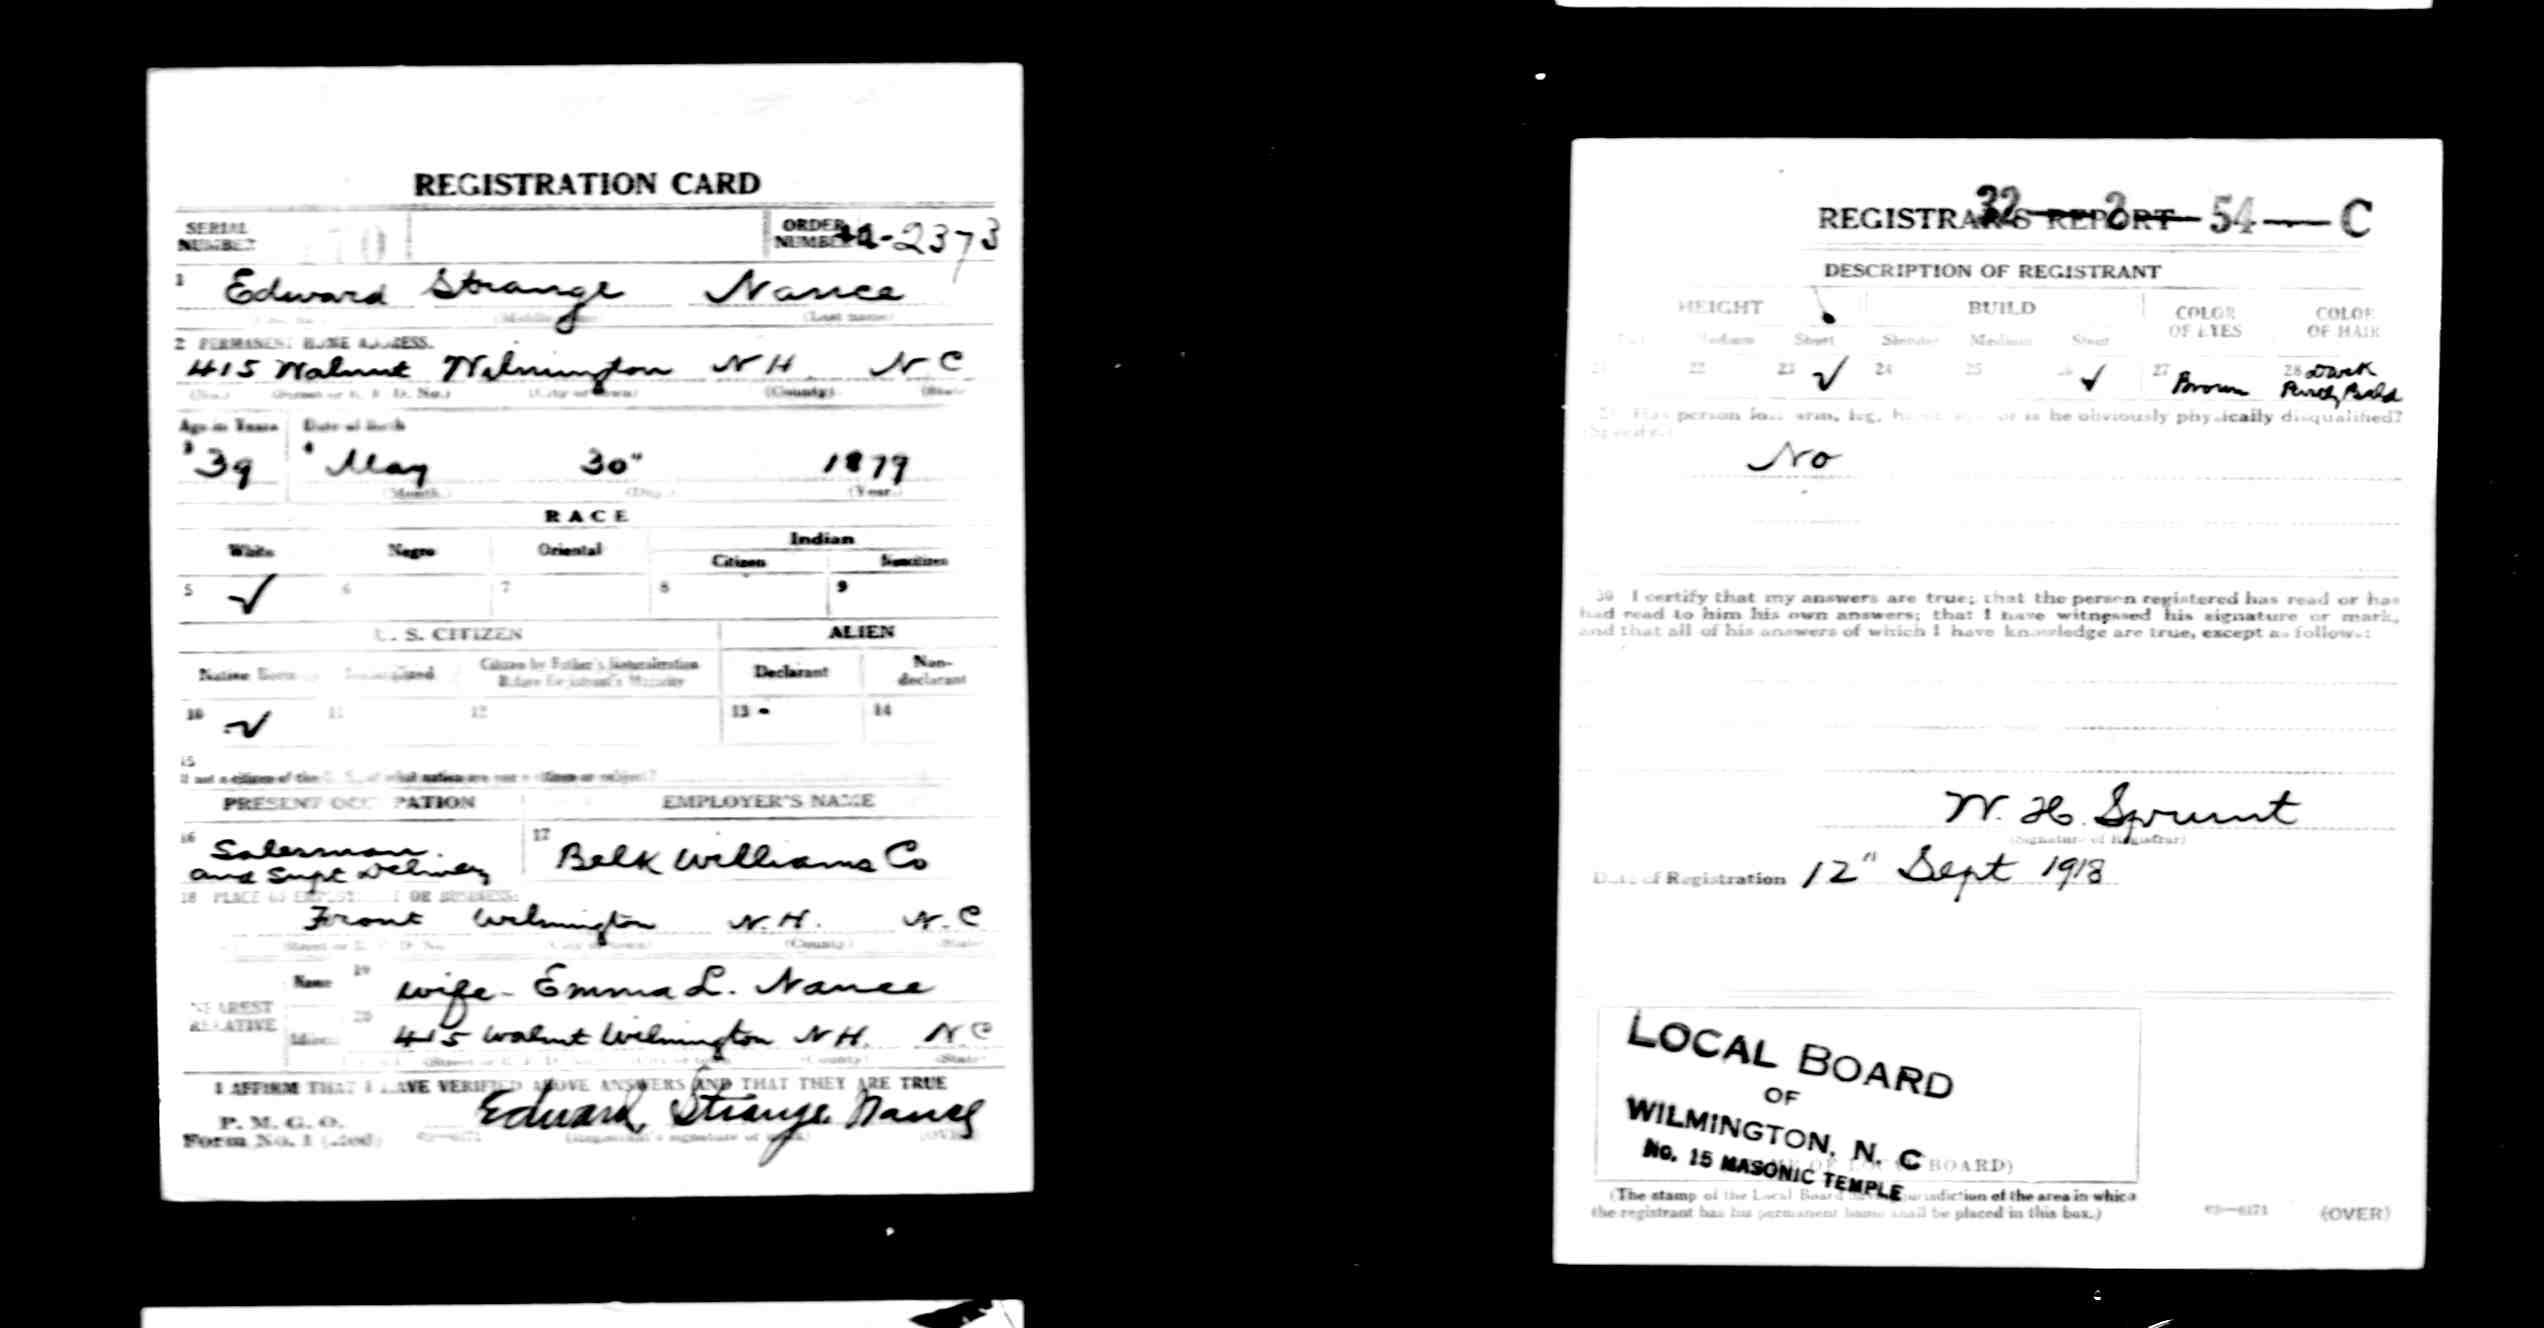 REGISTRATION CARD
SERIAL NUMBER
ORDER NUMBER A-2373
1 Edward Strange Nance
(Middle name) (Last name)
2 PERMANENT HOME ADDRESS.
415 Walnut Wilmington N H N C
(No.) (Street or R. F. D. No.) (City or town) (County) (State)
Age in Years Date of Birth
3 39 4 May 30" 1879
(Month.) (Day.) (Year.)
RACE
White Negro Oriental Indian
Citizen Noncitizen
5 √ 6 7 8 9
U. S. CITIZEN ALIEN
Native Born Naturalized Citizen by Father's Naturalization Before Registrant's Majority Declarant Non-declarant
10 √ 11 12 13 14
15
If not a citizen of the U. S., of what nation are you a citizen or subject?
PRESENT OCCUPATION EMPLOYER'S NAME
16 Salesman. 17 Belk Williams Co
and Supt Delivery
18 PLACE OF EMPLOYMENT OR BUSINESS:
Front Wilmington N.H. N.C
(Street or R. F. D. No.) (City or town) (County) (State)
NEAREST RELATIVE
Name 19 wife - Emma L. Nance
Address 20 415 Walnut Wilmington N H. N C
(Street or R. F. D. No.) (City or town) (County) (State)
I AFFIRM THAT I HAVE VERIFIED ABOVE ANSWERS AND THAT THEY ARE TRUE
P. M. G. O.
Form No. 1 (Red) Edward Strange Nance
(Registrant's signature or mark) (OVER)
REGISTRAR'S REPORT 32—2—54—C
DESCRIPTION OF REGISTRANT
HEIGHT BUILD COLOR OF EYES COLOR OF HAIR
Tall Medium Short Slender Medium Stout
21 22 23 √ 24 25 26 √ 27 Brown 28 Dark
Bald
29 Has person lost arm, leg, hand, eye, or is he obviously physically disqualified?
(Specify.)
No
30 I certify that my answers are true; that the person registered has read or has
had read to him his own answers; that I have witnessed his signature or mark,
and that all of his answers of which I have knowledge are true, except as follows:
W. H. Sprunt
(Signature of Registrar)
Date of Registration 12" Sept 1918
LOCAL BOARD
OF
WILMINGTON, N. C
No. 15 MASONIC TEMPLE
(STAMP OF LOCAL BOARD)
(The stamp of the Local Board having jurisdiction of the area in which
the registrant has his permanent home shall be placed in this box.)
03—6171 (OVER)